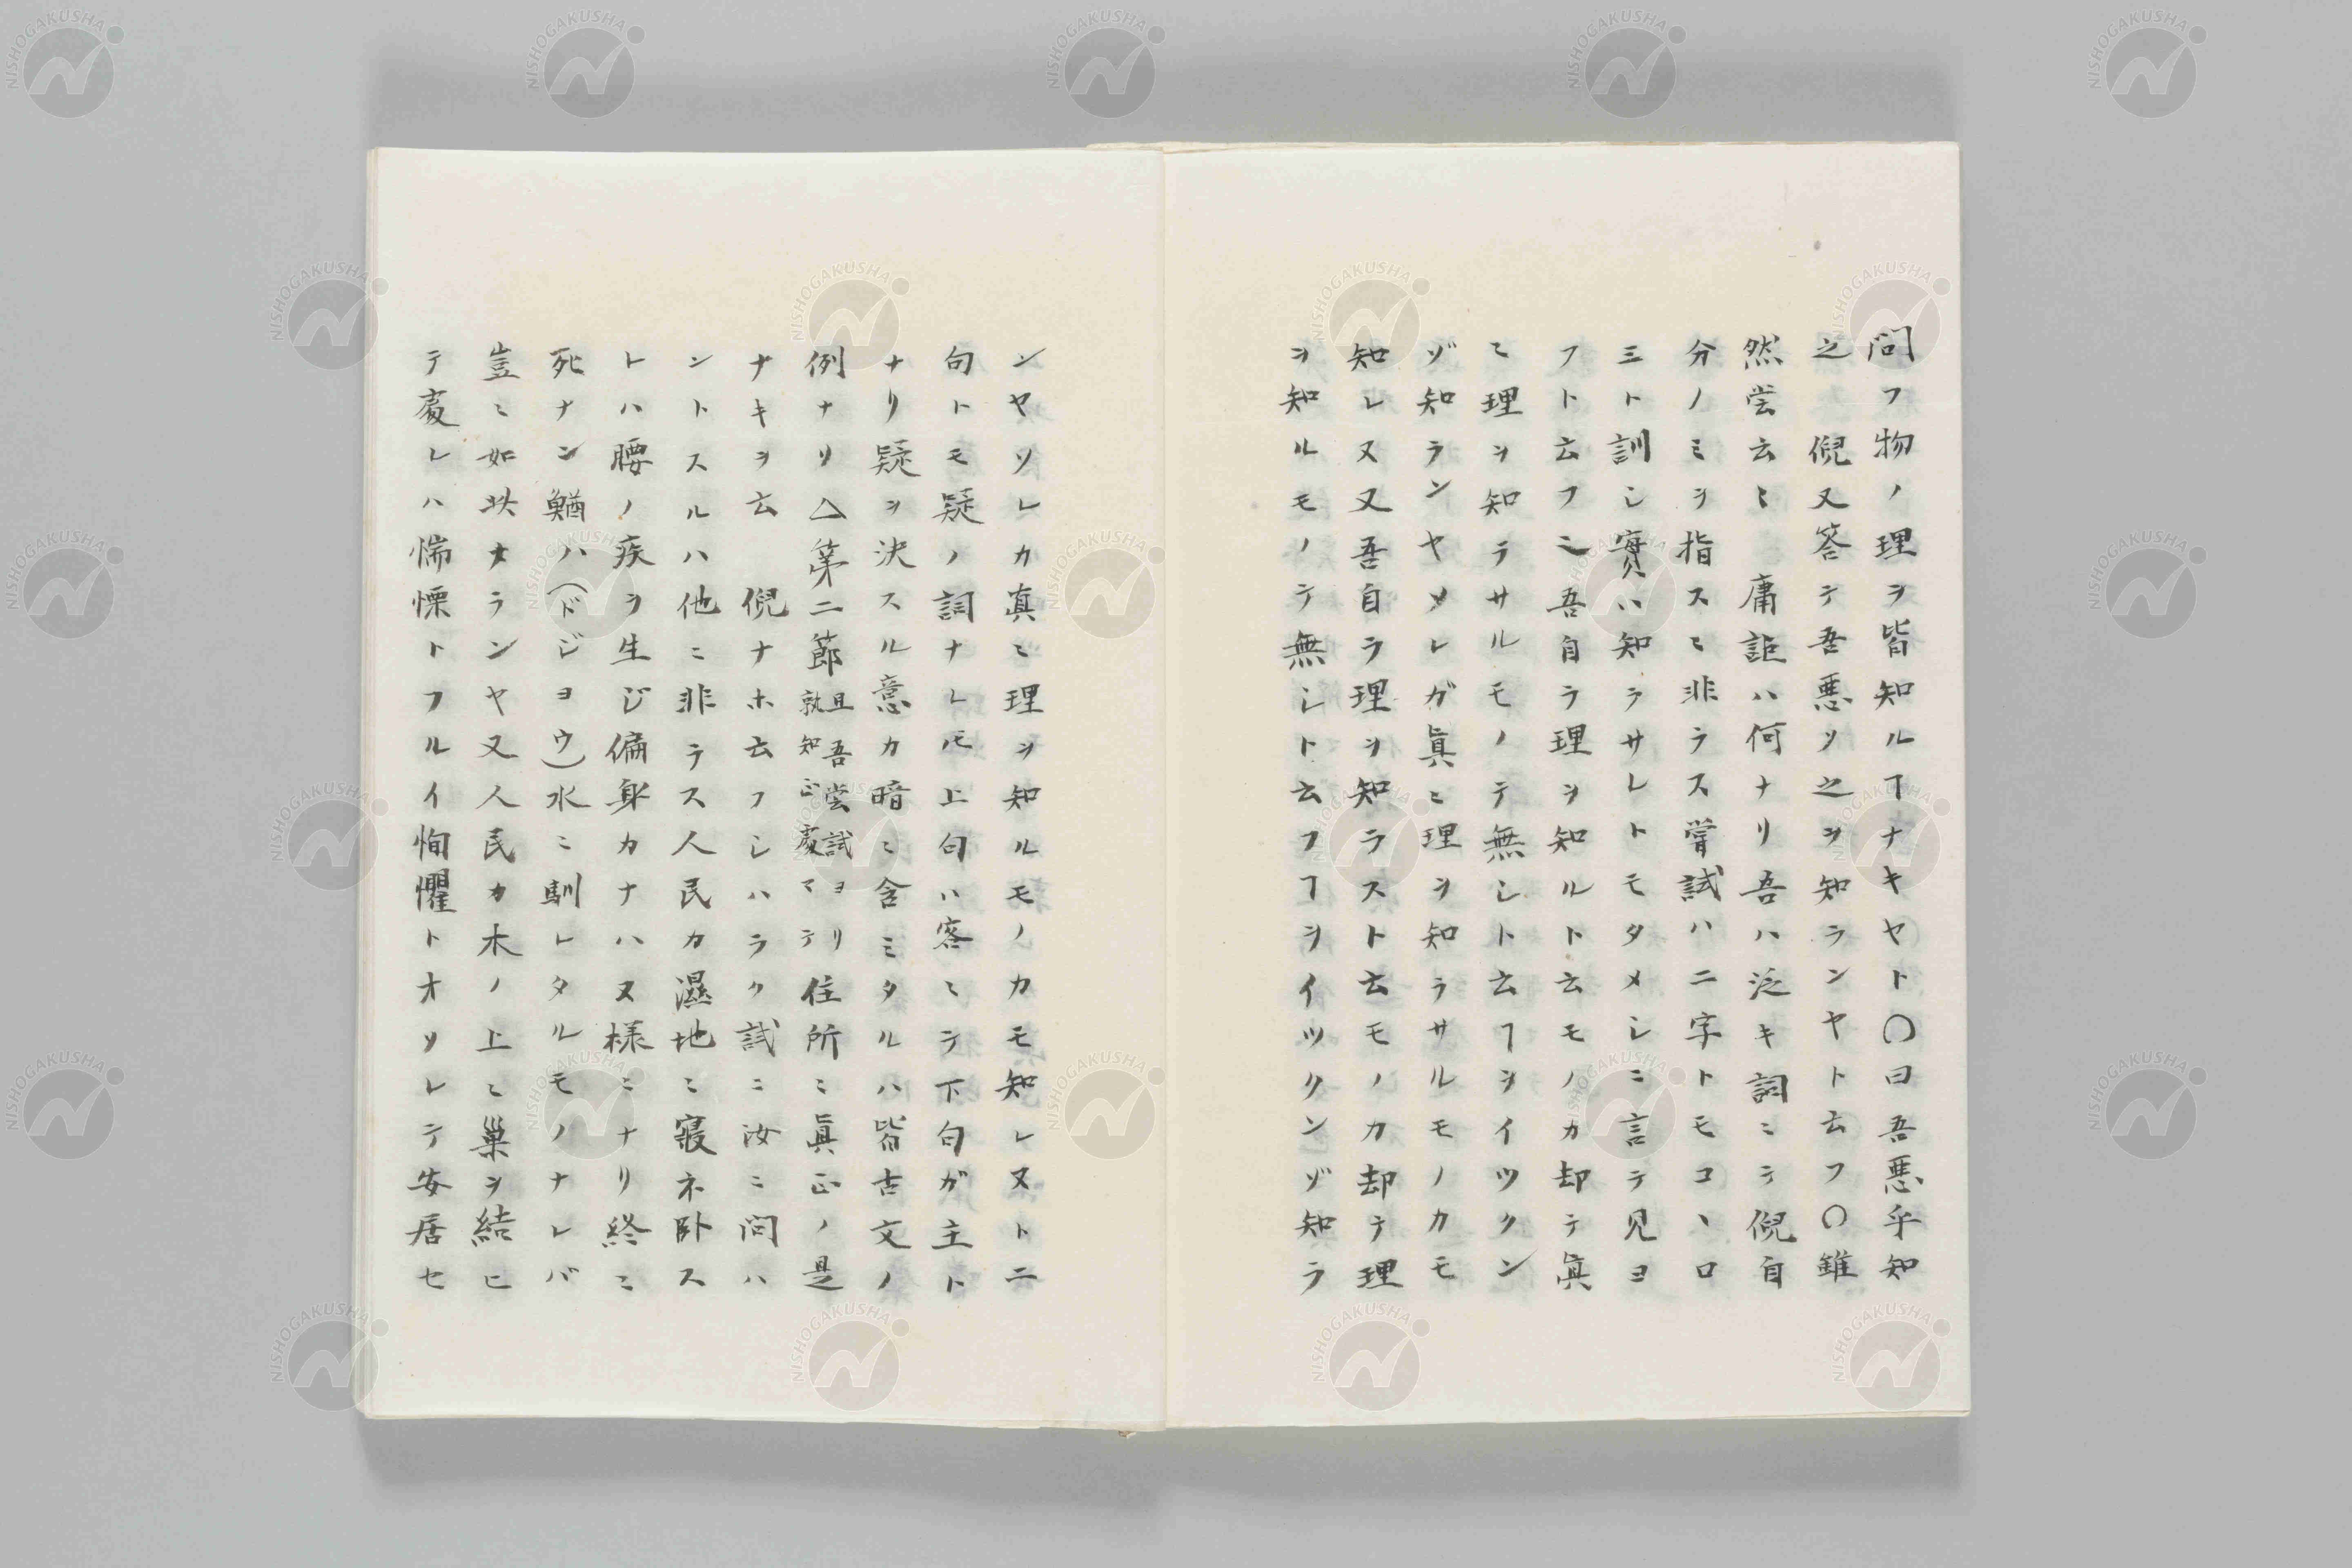 問フ物ノ理ヲ皆知ルヿナキヤト〇曰吾悪乎知
之　倪又答テ吾悪ソ之ヲ知ランヤト云フ〇雖
然嘗云ミ　庸詎ハ何ナリ吾ハ泛キ詞ニテ倪自
分ノミヲ指スミ非ラス嘗試ハ二字トモコヽロ
ミト訓シ實ハ知ラサレトモタメシニ言テ見ヨ
フト云フニ吾自ラ理ヲ知ルト云モノカ却テ眞
ミ理ヲ知ラサルモノテ無シト云ヿヲイツクン
ゾ知ランヤソレガ眞ミ理ヲ知ラサルモノカモ
知レヌ又吾自ラ理ヲ知ラスト云モノカ却テ理
ヲ知ルモノテ無シト云フヿヲイツクンゾ知ラ
ンヤソレカ真ミ理ヲ知ルモノカモ知レヌト二
句トモ疑ノ詞ナレ𪜈上句ハ客ミテ下句ガ主ト
ナリ疑ヲ決スル意カ暗ミ含ミタルハ皆古文ノ
例ナリ△第二節且吾嘗試ヨリ孰知正處マテ住所ミ眞正ノ是
ナキヲ云　倪ナホ云フシハラク試ニ汝ニ問ハ
ントスルハ他ニ非ラス人民カ濕地ミ寢ネ卧ス
トハ腰ノ疾ヲ生ジ偏身カナハヌ様ニナリ終ミ
死ナン鰌ハ（ドジヨウ）水ニ馴レタルモノナレバ
豈ミ如此ナランヤ又人民カ木ノ上ミ巣ヲ結ヒ
テ處レハ惴慄トフルイ恂懼トオソレテ安居セ